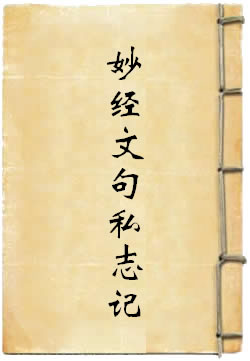 妙经文句私志记